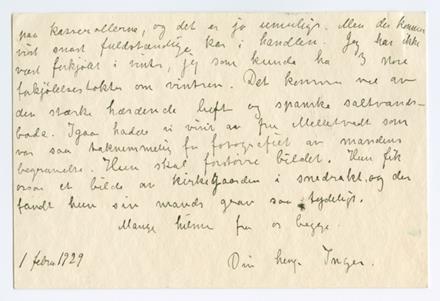 paa kasserollerne, og det er jo umuligt. Men der kommer
vist snart fuldstændige kar i handlen. Jeg har ikke
vært forkjølt i vinter, jeg som kunde ha 3 store
forkjølelsestokter om vinteren. Det kommer nok av
den stærke hærdende luft og spanske saltvands-
bade. Igaar hadde vi visit av fru Melletvedt som
var saa taknemmelig for fotografiet av mandens
begravelse. Hun skal forstørre bildet. Hun fik
ogsaa et bilde av kirkegaarden i snedrakt, og der
fandt hun sin mands grav saa tydeligt.
Mange hilsner fra os begge.
1 febru 1929
Din heng. Inger.